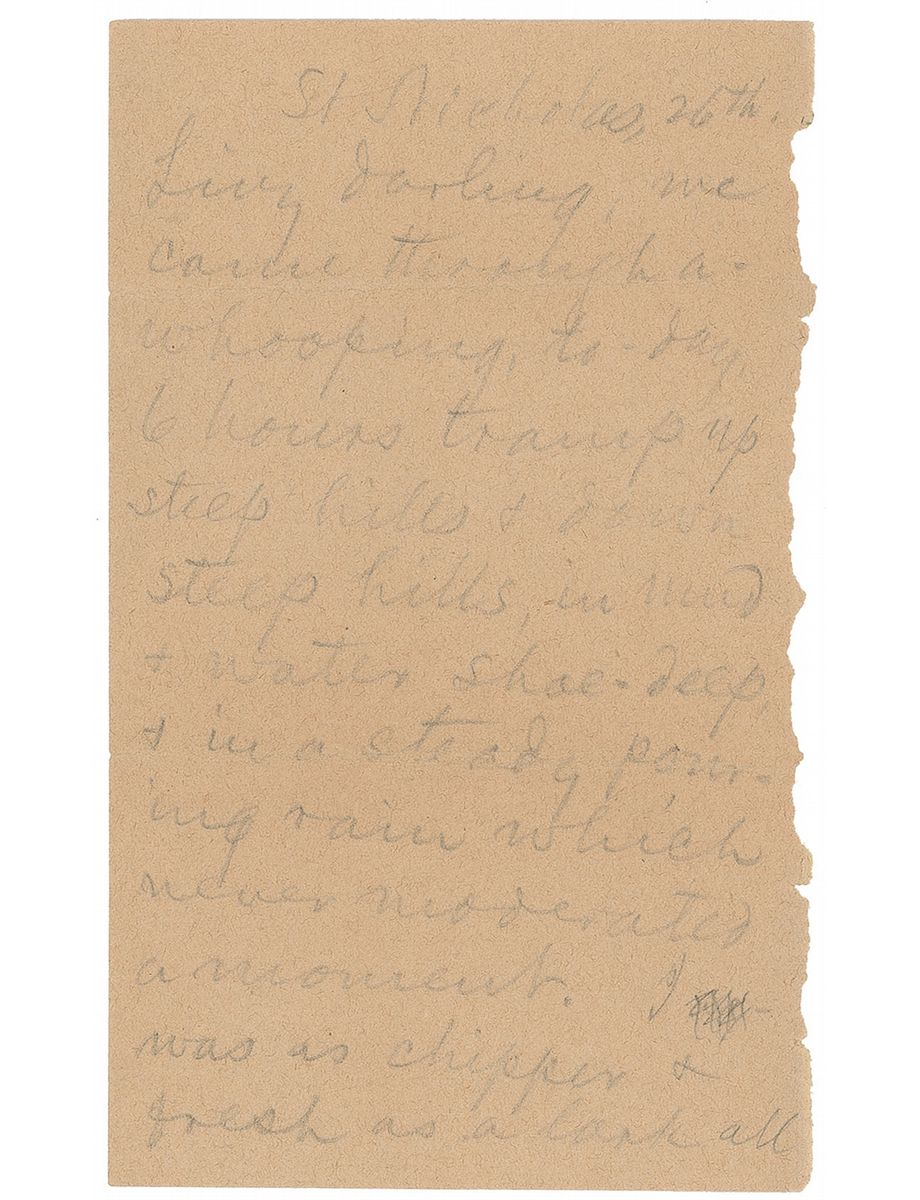 St Nicholas, 26th.
Livy darling, we
came through a-
whooping, to-day,
6 hours tramp up
steep hills & down
steep hills, in mud
& water shoe-deep,
& in a steady pour-
ing rain which
never moderated
a moment. I
was as chipper &
fresh as a lark all